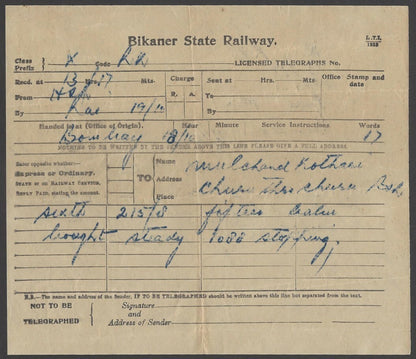 Bikaner State Railway.
L.T.I.
Class Prefix X Code
LICENSED TELEGRAPHS No.
Recd. at 13 H. 17 Mts.
Charge
Sent at Hrs. Mts.
Office Stamp and date
From
R. A.
To
By 19/10
By
Handed in at (Office of Origin).
Hour Minute Service Instructions Words
Bombay 17
NOTHING TO BE WRITTEN BY THE SENDER ABOVE THIS LINE PLEASE GIVE A FULL ADDRESS
Enter opposite whether:—
Express or Ordinary.
State or on Railway Service.
Reply Paid, stating the amount.
TO
Name Mulchand Kothari
Place Churu
sixth 215/8 fifteen
bought steady 1000 stopping.
N.B.—The name and address of the Sender, IF TO BE TELEGRAPHED should be written above this line but separated from the text.
NOT TO BE TELEGRAPHED
Signature
and
Address of Sender